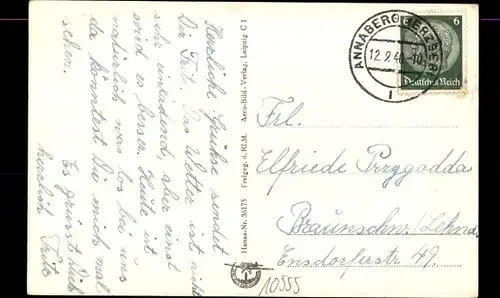 Herzliche Grüße sendet
Dir Fritz. Das Wetter ist nicht
sehr einladend, aber sonst
wird es besser. Heute ist
natürlich was los bei uns
da könntest Du mich mal
sehen.
Es grüsst Dich
herzlich Fritz
Hansa-Nr. 36175 Freigeg. d. RLM. Aero-Bild-Verlag, Leipzig C 1
ANNABERG (ERZGEB)
12.9.40.-10
1
6
Deutsches Reich
Frl.
Elfriede Przygodda
Braunschw./Lehnd.
Ensdorferstr 49.
10555